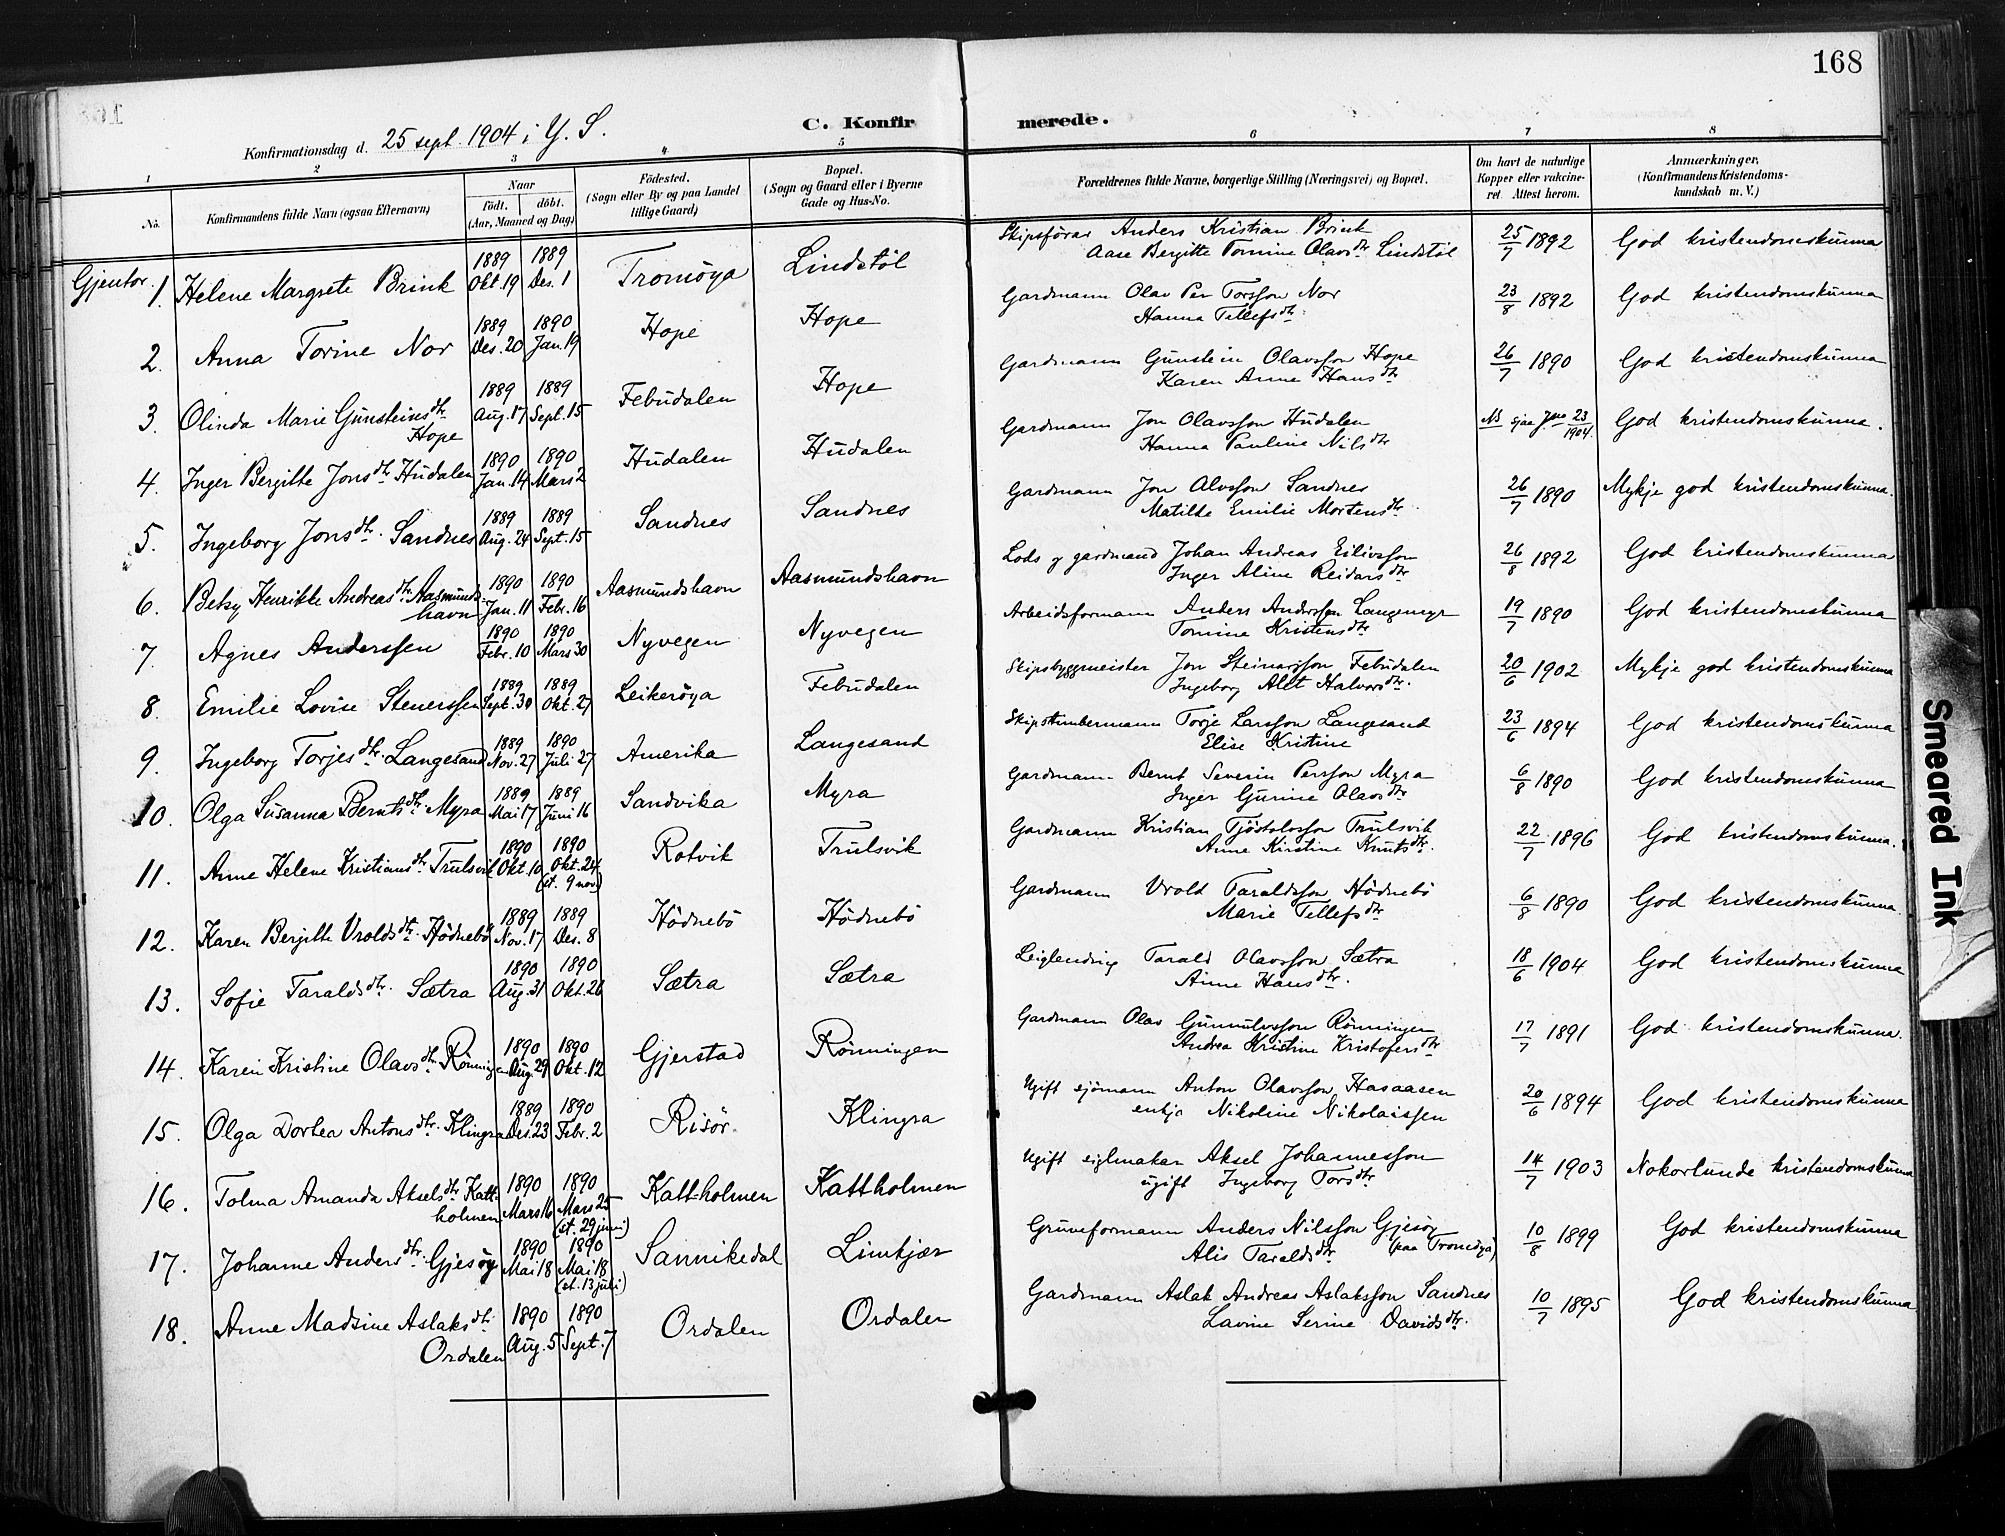 168
C. Konfirmerede.
Konfirmationsdag d. 25 sept. 1904 i Y. S.
1 2 3 4 5 6 7 8
No. | Konfirmandens fulde Navn (ogsaa Efternavn) | Naar födt. döbt. (Aar, Maaned og Dag) | Födested. (Sogn eller By og paa Landet tillige Gaard) | Bopæl. (Sogn og Gaard eller i Byerne Gade og Hus-No. | Forældrenes fulde Navne, borgerlige Stilling (Næringsvei) og Bopæl. | Om havt de naturlige Kopper eller vaccineret. Attest herom. | Anmærkninger. (Konfirmandens Kristendomskundskab m. V.)
Gjentor.
1. Helene Margrete Brink | 1889 Okt. 19 | 1889 Des. 1 | Tromöya | Lindstöl | Skipsförar Anders Kristian Brink Aase Bergitte Tomine Olavs dtr. Lindstöl | 25/7 1892 | God kristendomskunna
2. Anna Torine Nor | 1889 Des. 20 | 1890 Jan. 19 | Hope | Hope | Gardmann Olav Per Torsson Nor Hanna Tellefs dtr. | 23/8 1892 | God kristendomskunna
3. Olinda Marie Gunsteins dtr. Hope | 1889 Aug. 17 | 1889 Sept. 15 | Febudalen | Hope | Gardmann Gunstein Olavsson Hope Karen Anne Hans dtr | 26/7 1890 | God kristendomskunna
4. Inger Bergitte Jons dtr. Hudalen | 1890 Jan. 14 | 1890 Mars 2 | Hudalen | Hudalen | Gardmann Jon Olavsson Hudalen Hanna Pauline Nils dtr | NS sjaa Jno 23/1904. | God kristendomskunna.
5. Ingeborg Jons dtr. Sandnes | 1889 Aug. 24 | 1889 Sept. 15 | Sandnes | Sandnes | Gardmann Jon Alvsson Sandnes Matilde Emilie Mortens dtr. | 26/7 1890 | Mykje god kristendomskunna.
6. Betsy Henrikke Andreas dtr. Aasmundshavn | 1890 Jan. 11 | 1890 Febr. 16 | Aasmundshavn | Aasmundshavn | Lods og gardmand Johan Andreas Eilivsson Inger Aline Reidars dtr | 26/8 1892 | God kristendomskunna
7. Agnes Anderssen | 1890 Febr. 10 | 1890 Mars 30 | Nyvegen | Nyvegen | Arbeidsformann Anders Andersson Langemyr Tomine Kristens dtr | 19/7 1890 | God kristendomskunna
8. Emilie Lovise Stenerssen | 1889 Sept. 30 | 1889 Okt. 27 | Leikeröya | Febudalen | Skipsbyggmeister Jon Steinarsson Febudalen Ingeborg Alet Halvors dtr. | 20/6 1902 | Mykje god kristendomskunna
9. Ingeborg Torjes dtr. Langesand | 1889 Nov. 27 | 1890 Juli 27 | Amerika | Langesand | Skipstimbermann Torje Larsson Langesand Elise Kristine | 23/6 1894 | God kristendomskunna
10. Olga Susanna Bernts dtr. Myra | 1889 Mai 17 | 1889 Juni 16 | Sandvika | Myra | Gardmann Bernt Severin Persson Myra Inger Gurine Olavs dtr | 6/8 1890 | God kristendomskunna
11. Anne Helene Kristians dtr. Trulsvik | 1890 Okt. 10 | 1890 Okt. 24 (st. 9 nov.) | Rotvik | Trulsvik | Gardmann Kristian Tjöstolvsson Trulsvik Anne Kirstine Knuts dtr. | 22/7 1896 | God kristendomskunna.
12. Karen Bergitte Vrolds dtr. Hödnebö | 1889 Nov. 17 | 1889 Des. 8 | Hödnebö | Hödnebö | Gardmann Vrold Taraldsson Hödnebö Marie Tellefs dtr | 6/8 1890 | God kristendomskunna.
13. Sofie Taralds dtr. Sætra | 1890 Aug. 31 | 1890 Okt. 26 | Sætra | Sætra | Leiglending Tarald Olavsson Sætra Anne Hans dtr. | 18/6 1904 | God kristendomskunna
14. Karen Kristine Olavs dtr. Rönningen | 1890 Aug. 29 | 1890 Okt. 12 | Gjerstad | Rönningen | Gardmann Olav Gunnulvsson Rönningen Andrea Kristine Kristofers dtr | 17/7 1891 | God kristendomskunna.
15. Olga Dortea Antons dtr. Klingra | 1889 Des. 23 | 1890 Febr. 2 | Risör. | Klingra | Ugift sjömann Anton Olavsson Hasaasen enkja Nikoline Nikolaissen | 20/6 1894 | God kristendomskunna
16. Tolma Amanda Aksels dtr. Kattholmen | 1890 Mars 16 | 1890 Mars 25 (st. 29 juni) | Kattholmen | Kattholmen | Ugift siglmakar Aksel Johannesson ugift Ingeborg Tors dtr | 14/7 1903 | Nokorlunde kristendomskunna
17. Johanne Anders dtr. Gjesöy | 1890 Mai 18 | 1890 Mai 18 (st. 13 juli) | Sannikedal | Limkjær | Gruveformann Anders Nilsson Gjesöy (paa Tromöya) Alis Taralds dtr | 10/8 1899 | God kristendomskunna
18. Anne Madsine Aslaks dtr. Ordalen | 1890 Aug. 5 | 1890 Sept. 7 | Ordalen | Ordalen | Gardmann Aslak Andreas Aslaksson Sandnes Lavine Serine Davids dtr. | 10/7 1895 | God kristendomskunna
Smeared Ink